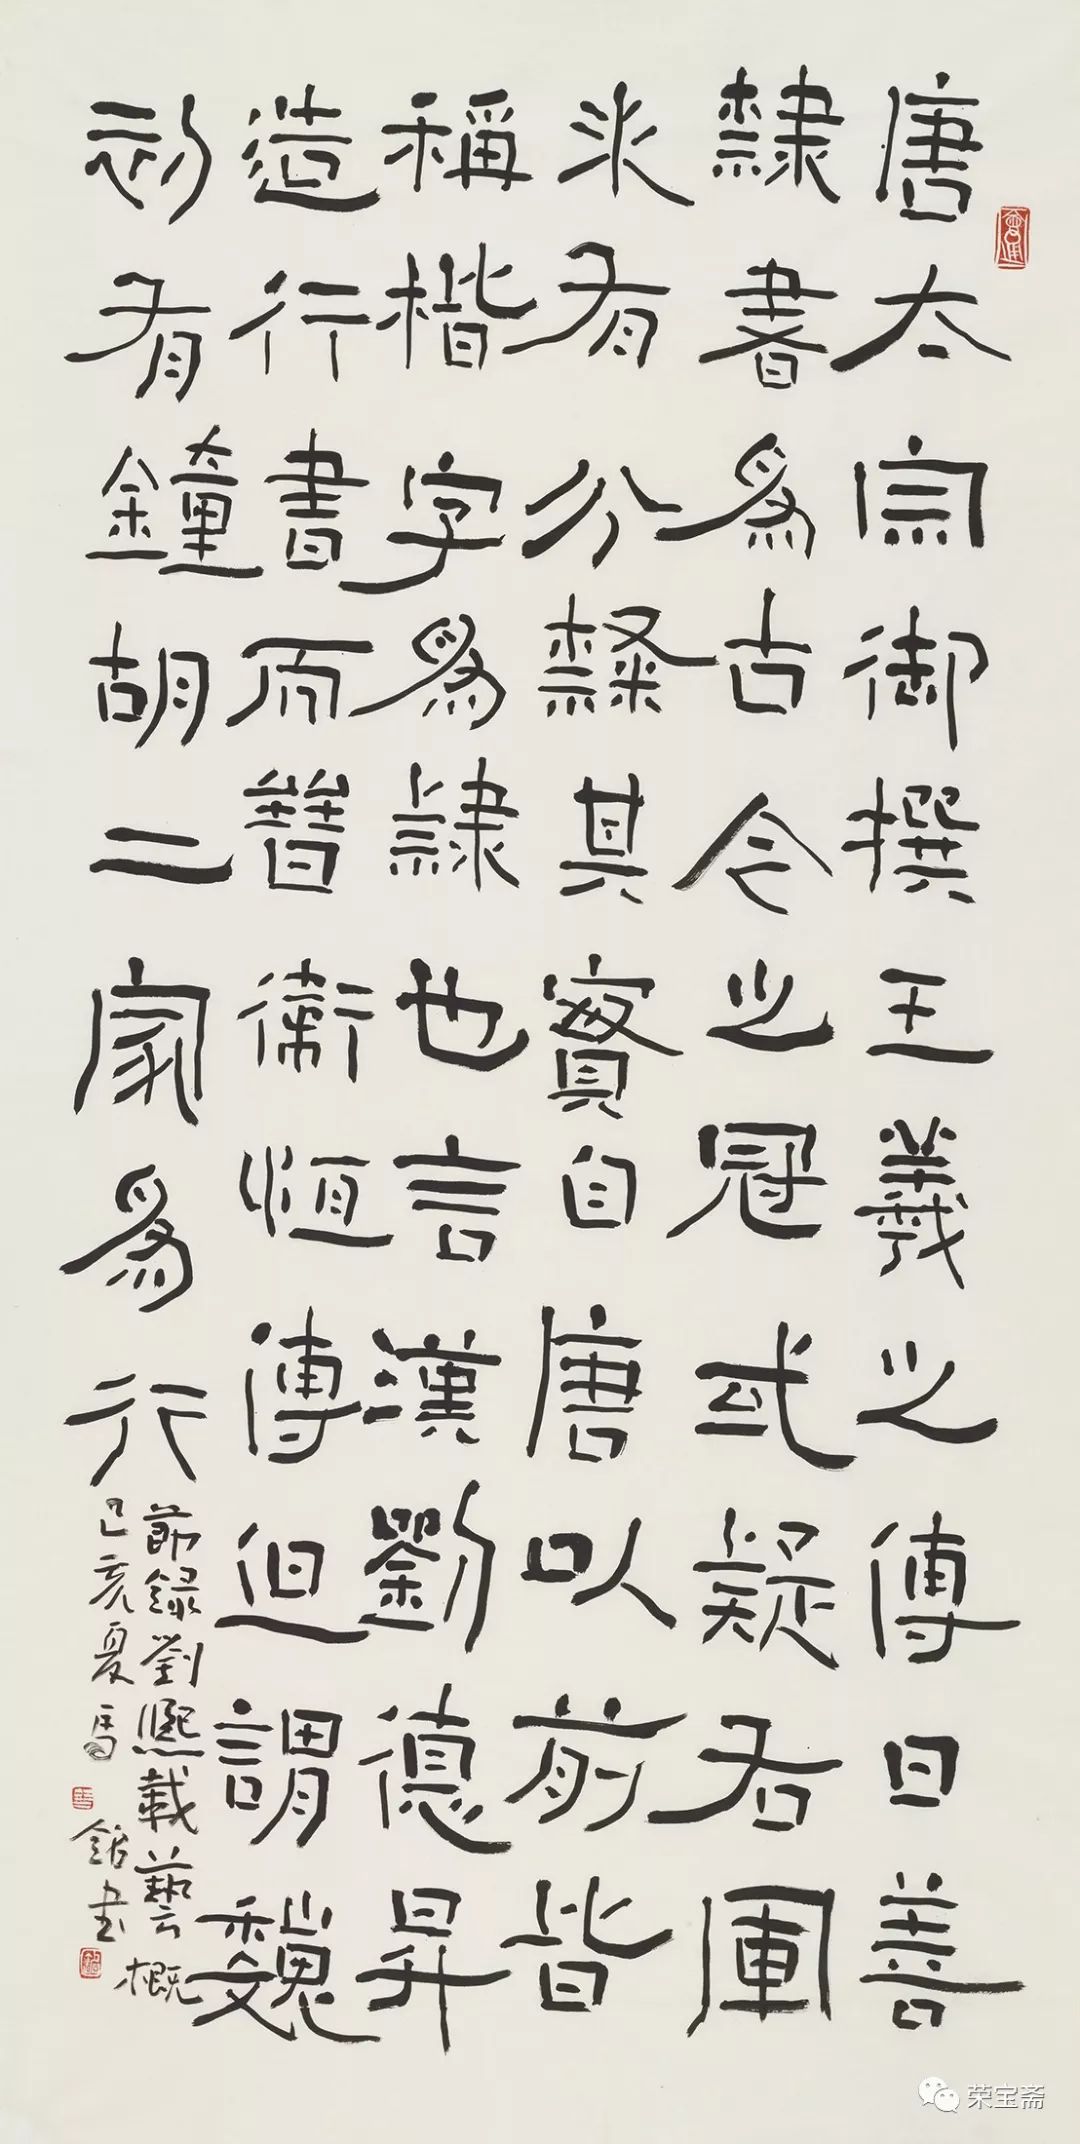 唐太宗御撰王羲之傳曰善
隸書爲古今之冠或疑右軍
未有分隸其實自唐以前皆
稱楷字爲隸也言漢劉德昇
造行書而晉衛恆傳但謂魏
初有鐘胡二家爲行
節錄劉熙載藝概
己亥夏馬鍇書
荣宝斋